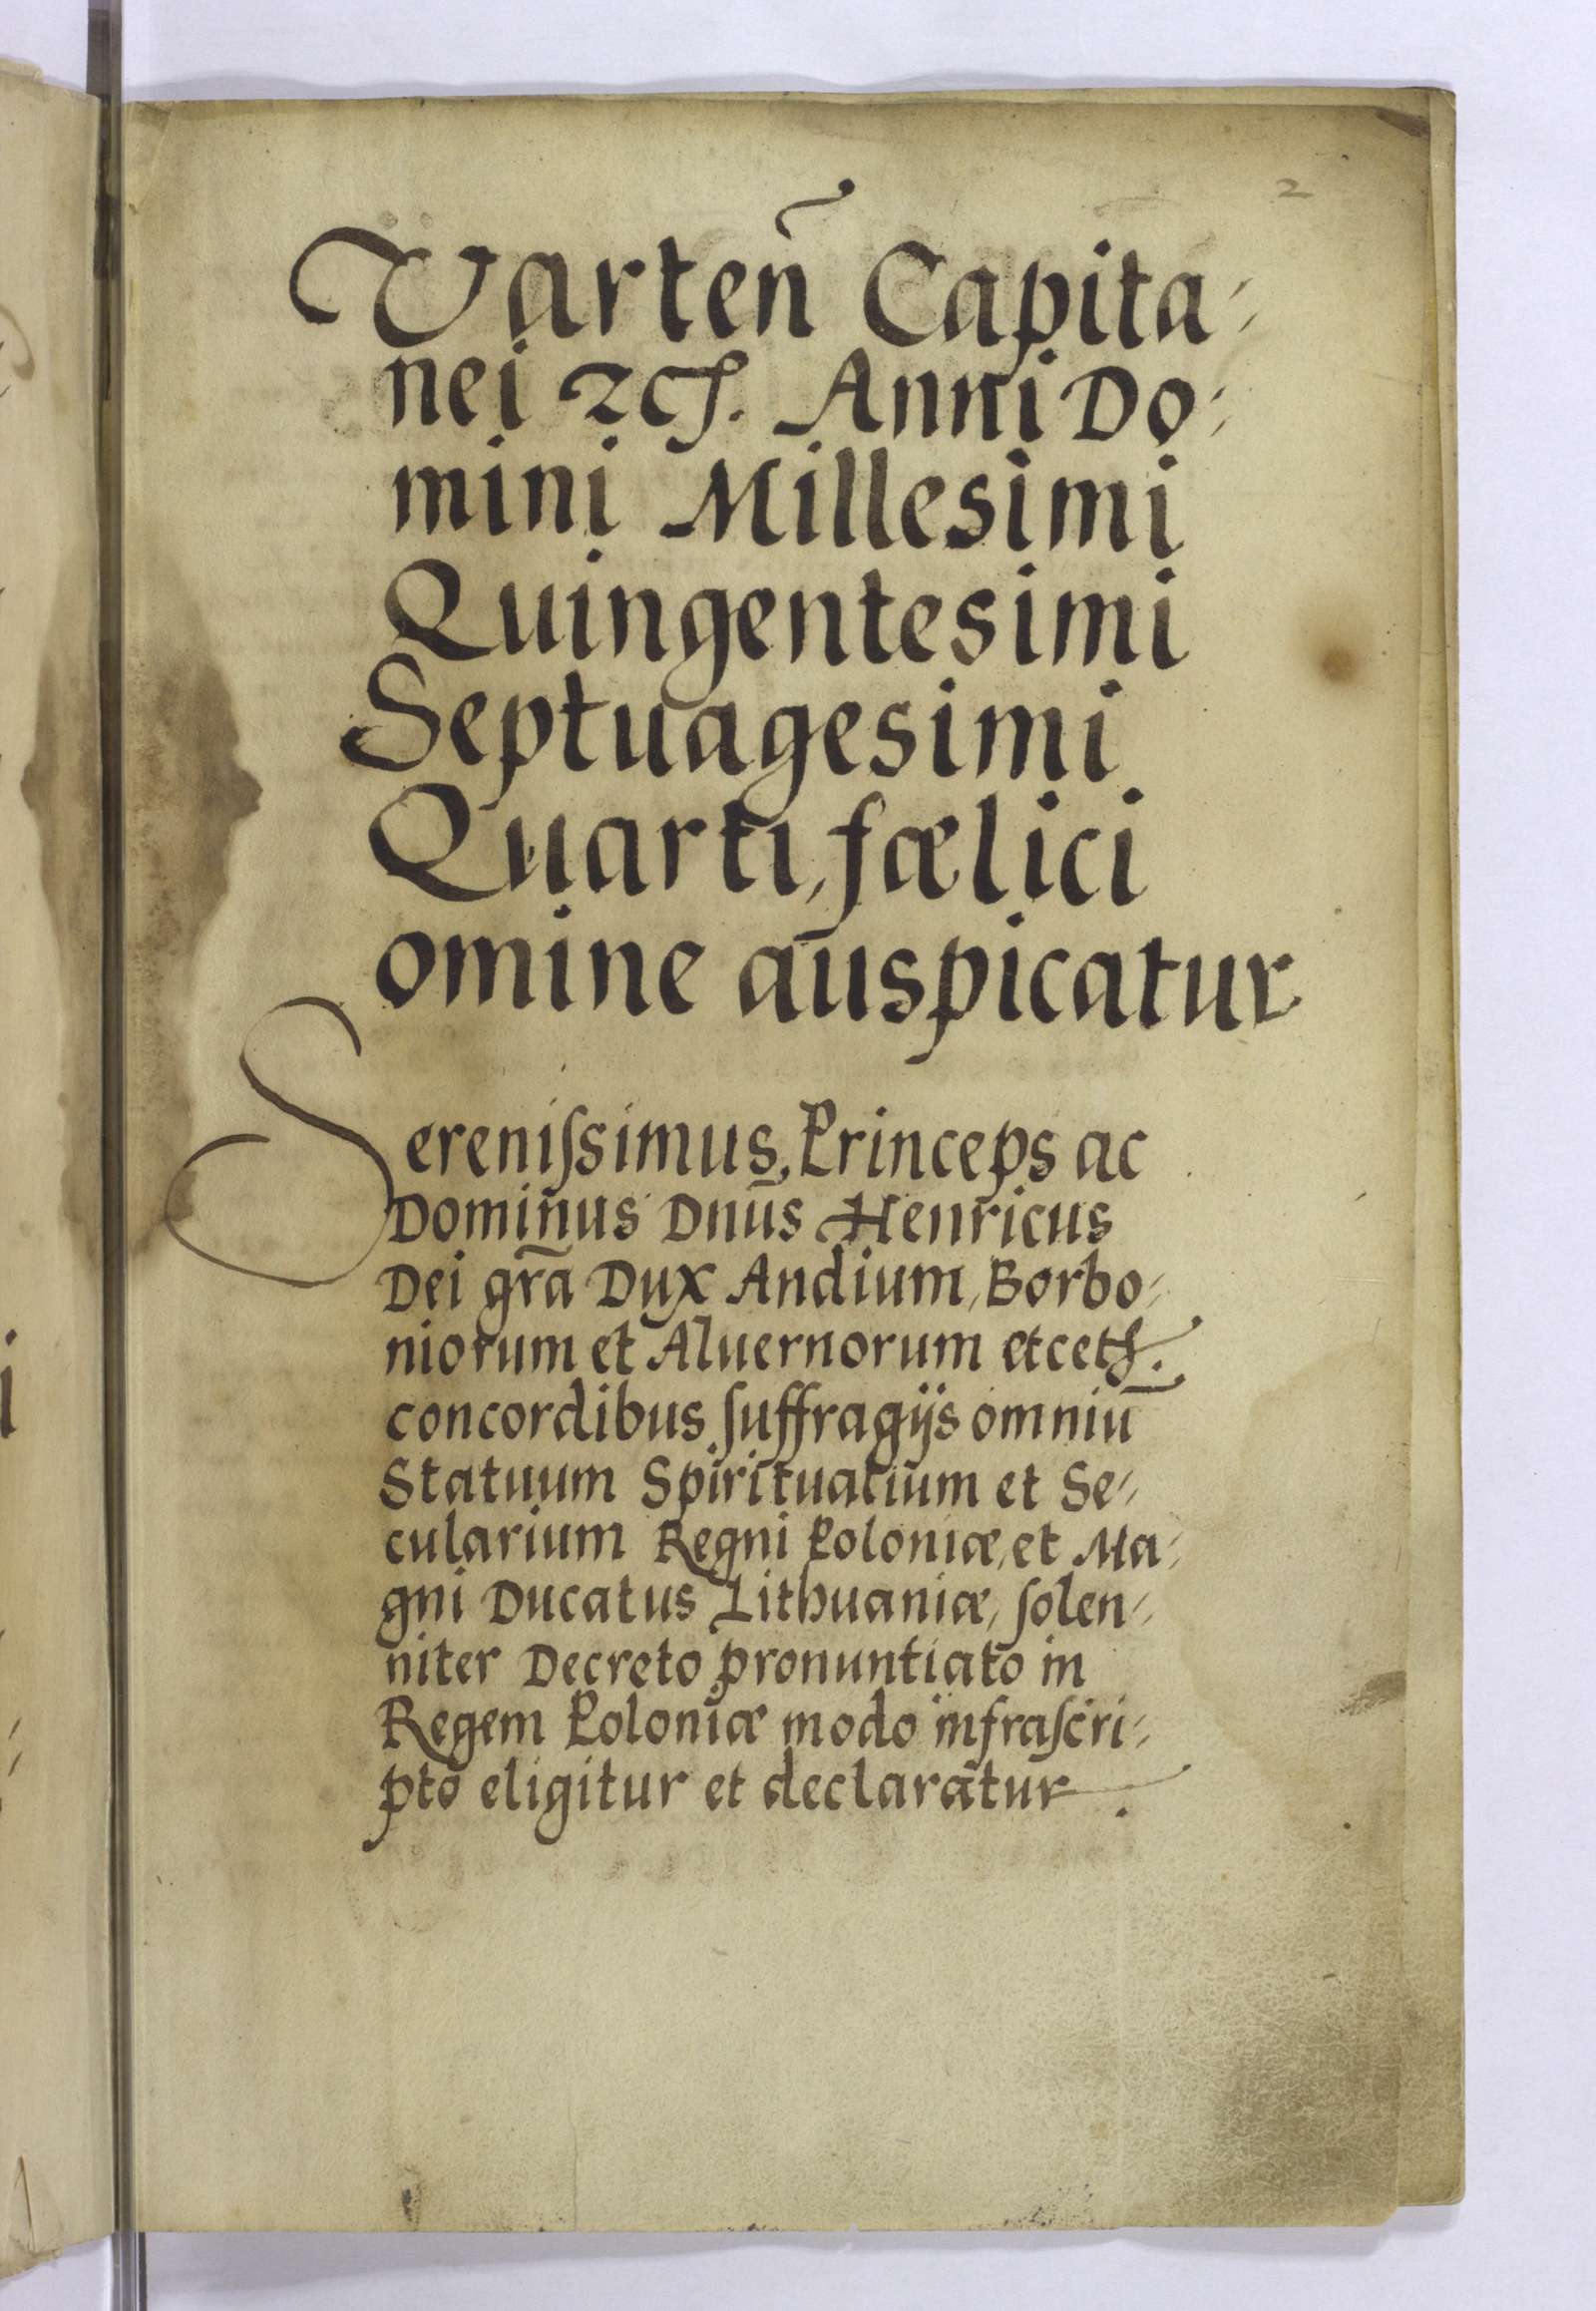 2
Varteñ Capita-
nei etc. Anni Do-
mini Millesimi
Quingentesimi
Septuagesimi
Quarti, fælici
omine auspicatur
Sereniſsimus, Princeps ac
Dominus Dnūs Henricus
Dei grā Dux Andium, Borbo-
niorum et Aluernorum etcet.
concordibus ſuffragijs omniū
Statuum Spiritualium et Se-
cularium Regni Poloniæ, et Ma-
gni Ducatus Lithuaniæ, ſolen-
niter Decreto pronuntiato in
Regem Poloniæ modo infraſcri-
pto eligitur et declaratur.